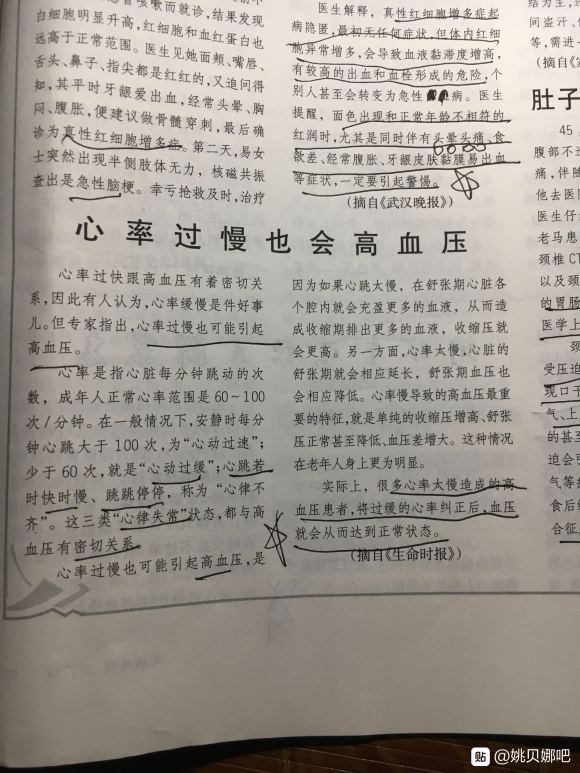 冒咳嗽而就诊，结果发现
白细胞明显升高，红细胞和血红蛋白也
远高于正常范围。医生见她面颊、嘴唇、
舌头、鼻子、指尖都是红红的，又追问得
知，其平时牙龈爱出血，经常头晕、胸
闷、腹胀，便建议做骨髓穿刺，最后确
诊为真性红细胞增多症。第二天，易女
士突然出现半侧肢体无力，核磁共振
查出是急性脑梗。幸亏抢救及时，治疗
医生解释，真性红细胞增多症起
病隐匿，最初无任何症状，但体内红细
胞异常增多，会导致血液黏滞度增高，
有较高的出血和血栓形成的危险，个
别人甚至会转变为急性病。医生
提醒，面色出现和正常年龄不相符的
红润时，尤其是同时伴有头晕头痛、食
欲差、经常腹胀、牙龈皮肤黏膜易出血
等症状，一定要引起警惕。
（摘自《武汉晚报》）
心率过慢也会高血压
心率过快跟高血压有着密切关
系，因此有人认为，心率缓慢是件好事
儿。但专家指出，心率过慢也可能引起
高血压。
心率是指心脏每分钟跳动的次
数，成年人正常心率范围是60~100
次/分钟。在一般情况下，安静时每分
钟心跳大于100次，为“心动过速”；
少于60次，就是“心动过缓”；心跳若
时快时慢、跳跳停停，称为“心律不
齐”。这三类“心律失常”状态，都与高
血压有密切关系。
心率过慢也可能引起高血压，是
因为如果心跳太慢，在舒张期心脏各
个腔内就会充盈更多的血液，从而造
成收缩期排出更多的血液，收缩压就
会更高。另一方面，心率太慢，心脏的
舒张期就会相应延长，舒张期血压也
会相应降低。心率慢导致的高血压最重
要的特征，就是单纯的收缩压增高、舒张
压正常甚至降低、血压差增大。这种情况
在老年人身上更为明显。
实际上，很多心率太慢造成的高
血压患者，将过缓的心率纠正后，血压
就会从而达到正常状态。
（摘自《生命时报》）
结为主，还
间盗汗、
等，需进
（摘自《
肚子
45
腹部不
痛，伴随
他去医
医生仔
老马患
颈椎CT
以及颈
的胃肠
医学上
颈
受压迫
现口干
气、上
的甚至
迫会
气等
食后
合征
贴 @姚贝娜吧